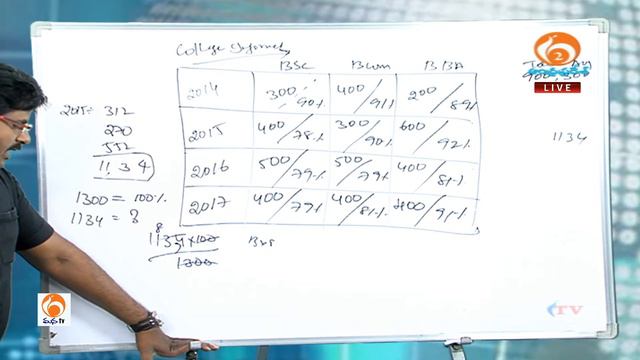 College
BSC BCom BBA
2014 300/90% 400/91% 200/89%
2015 400/78% 300/90% 600/92%
2016 500/79% 500/79% 400/81%
2017 400/79% 400/81% 400/91%
2015 = 312
270
552
1134
1300 = 100%
1134 = ?
8
1134 x 100
1300
1134
2
LIVE
TV
TV